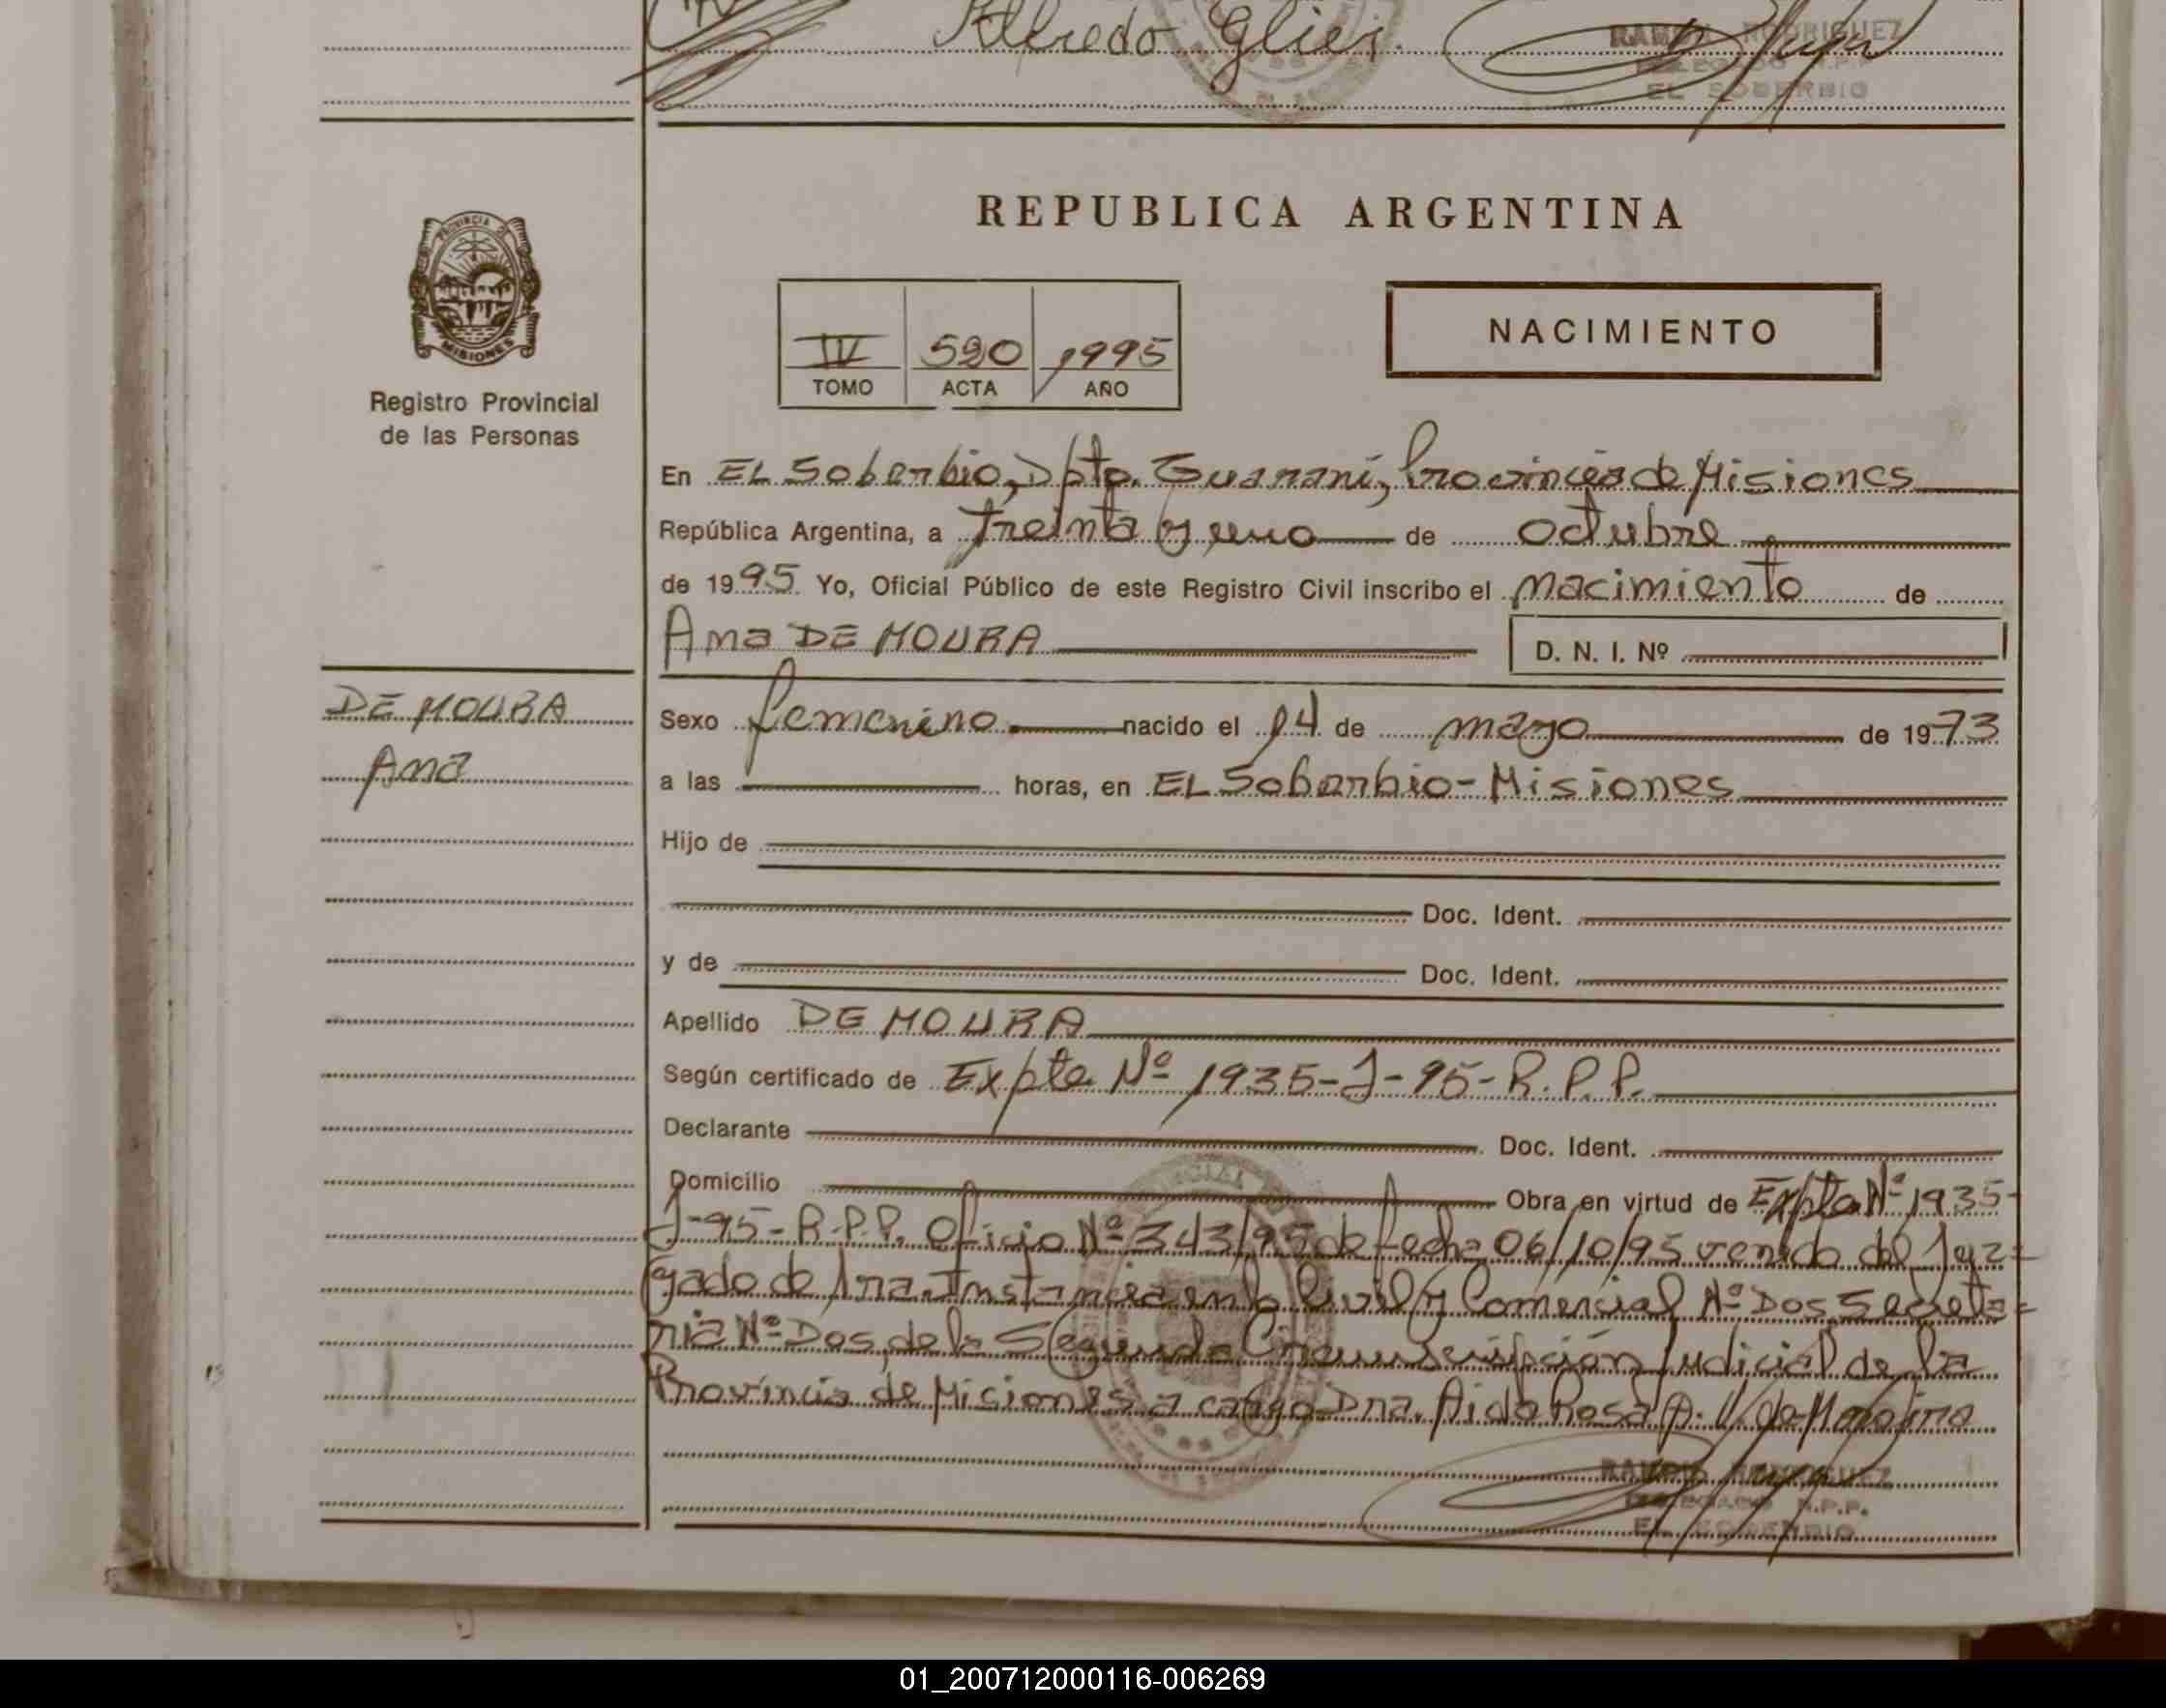 Alfredo Glier.
RAMON RODRIGUEZ
DELEGADO R.P.P.
EL SOBERBIO
PROVINCIA DE
MISIONES
Registro Provincial
de las Personas
REPUBLICA ARGENTINA
IV 590 1995
TOMO ACTA AÑO
NACIMIENTO
En EL Soberbio, Dpto. Guaraní, Provincia de Misiones
República Argentina, a Treinta y uno de octubre
de 1995 Yo, Oficial Público de este Registro Civil inscribo el Nacimiento de
Ana DE MOURA D. N. I. Nº
DE MOURA
Ana
Sexo femenino nacido el 14 de mayo de 1973
a las horas, en EL Soberbio-Misiones
Hijo de
Doc. Ident.
y de Doc. Ident.
Apellido DE MOURA
Según certificado de Expte Nº 1935-J-95-R.P.P.
Declarante Doc. Ident.
Domicilio Obra en virtud de Expte Nº 1935-
J-95-R.P.P. Oficio Nº 343/95 de fecha 06/10/95 venido del Juz=
gado de 1ra. Instancia en lo Civil y Comercial Nº Dos, Secreta=
ria Nº Dos, de la Segunda Circunscripción Judicial de la
Provincia de Misiones a cargo Dra. Aida Rosa A. V. de
RAMON RODRIGUEZ
DELEGADO R.P.P.
EL SOBERBIO
01_200712000116-006269